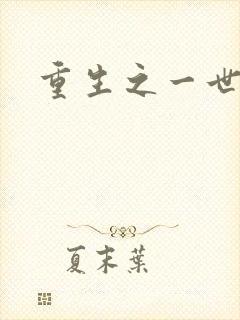 重生之一世
夏末葉